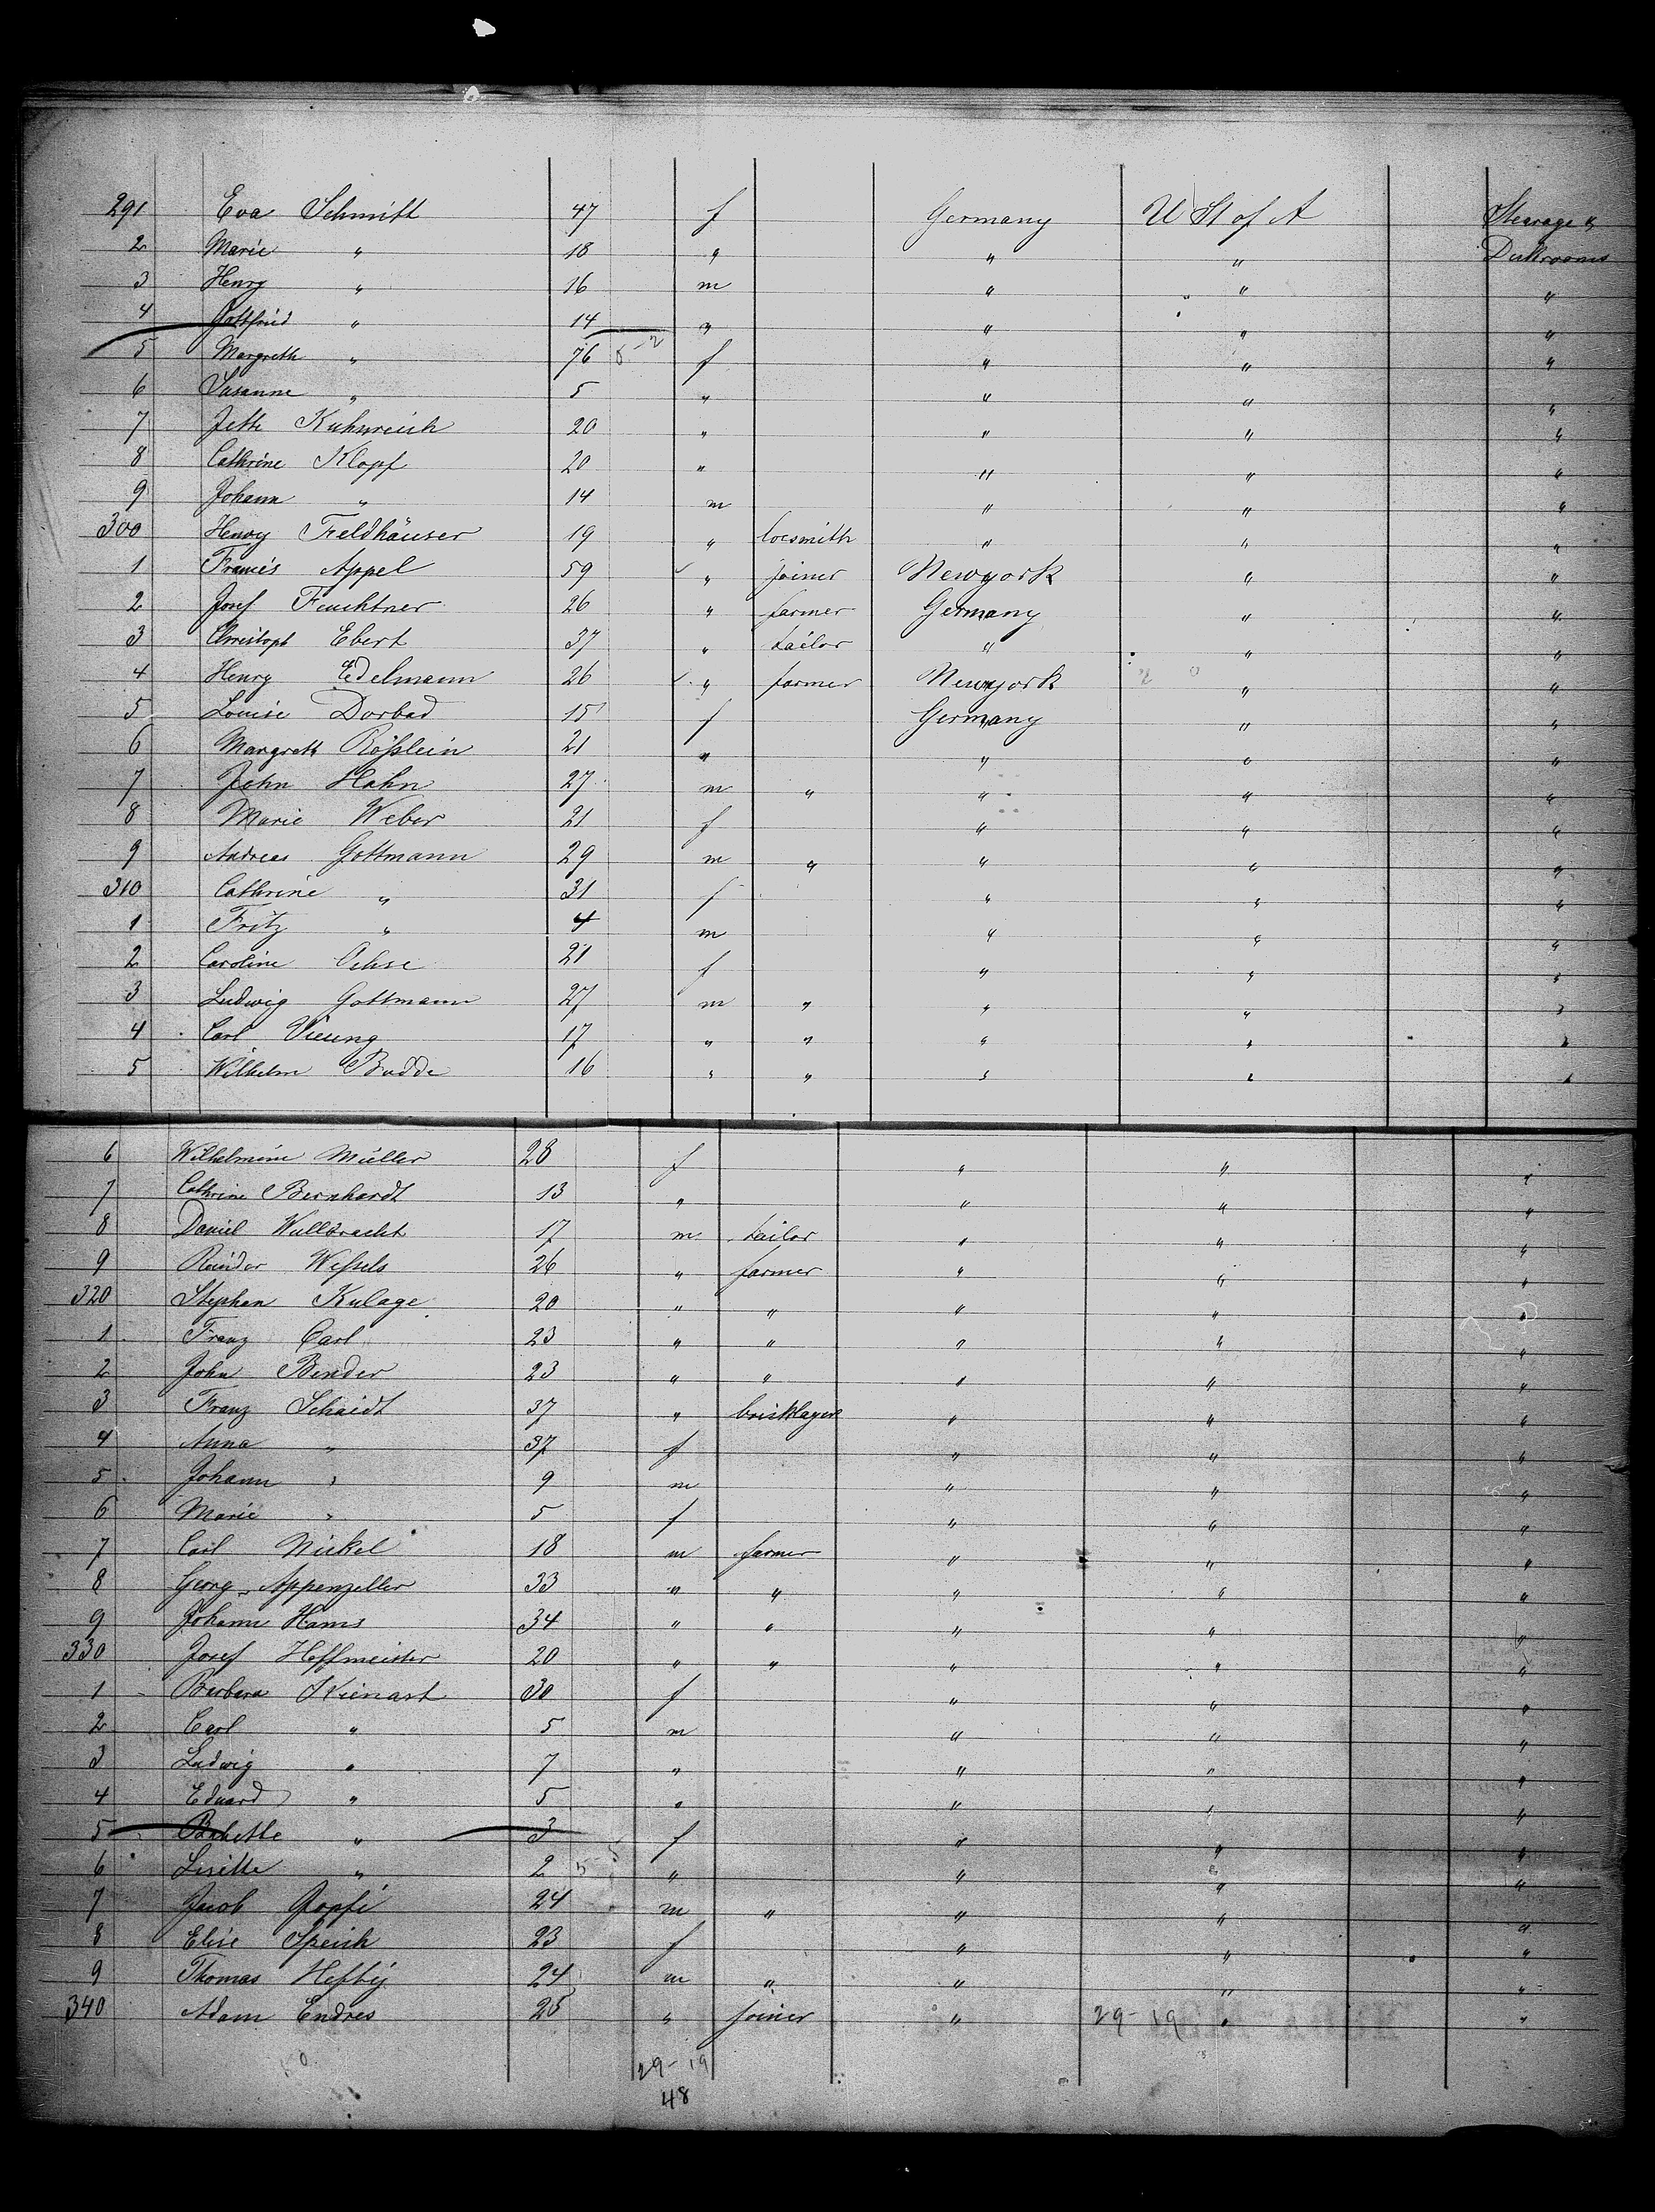 291 Eva Schmitt 47 f Germany U St of A Stearage &
2 Marie " 18 " " " Deckrooms
3 Henry " 16 m " " "
4 Gottfried " 14 " " " "
5 Margreth " 76 5-2 f " " "
6 Susanne " 5 " " " "
7 Jette Kuhnreich 20 " " " "
8 Cathrine Klopf 20 " " " "
9 Johann " 14 m " " "
300 Henry Feldhäuser 19 " locsmith " " "
1 Francis Appel 59 " joiner Newyork " "
2 Josef Feuchtner 26 " farmer Germany " "
3 Christoph Ebert 37 " tailor " " "
4 Henry Edelmann 26 " farmer Newyork " "
5 Louise Dorbad 15 f Germany " "
6 Margreth Rößlein 21 " " " "
7 John Hahn 27 m " " " "
8 Marie Weber 21 f " " "
9 Andreas Gottmann 29 m " " " "
310 Cathrine " 31 f " " "
1 Fritz " 4 m " " "
2 Caroline Ochse 21 f " " "
3 Ludwig Gottmann 27 m " " " "
4 Carl Vieung 17 " " " " "
5 Wilhelm Budde 16 " " " " "
6 Wilhelmine Müller 28 f " " "
7 Cathrine Bernhardt 13 " " " "
8 Daniel Wullbracht 17 m tailor " " "
9 Reinder Weßels 26 " farmer " " "
320 Stephan Kulage 20 " " " " "
1 Franz Carl 23 " " " " "
2 John Bender 23 " " " " "
3 Franz Schaidt 37 " bricklayer " " "
4 Anna " 37 f " " "
5 Johann " 9 m " " "
6 Marie " 5 f " " "
7 Carl Nickel 18 m farmer " " "
8 Georg Appenzeller 33 " " " " "
9 Johann Hams 34 " " " " "
330 Josef Hoffmeister 20 " " " " "
1 Barbara Kienast 30 f " " "
2 Carl " 5 m " " "
3 Ludwig " 7 " " " "
4 Eduard " 5 " " " "
5 Babette " 3 f " " "
6 Lisette " 2 5-5 " " " "
7 Jacob 24 m " " " "
8 Elise Speich 23 f " " "
9 Thomas Hefty 24 m " " " "
340 Adam Endres 25 " joiner " 29-19 " "
29-19
48